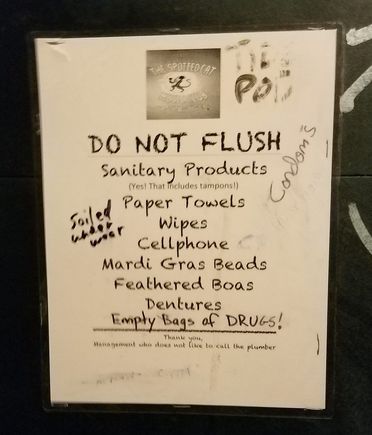 THE SPOTTED CAT
DO NOT FLUSH
Sanitary Products
(Yes! That includes tampons!)
Condom's
Paper Towels
Soiled
under
wear
Wipes
Cellphone
Mardi Gras Beads
Feathered Boas
Dentures
Empty Bags of DRUGS!
Thank you,
Management who does not like to call the plumber